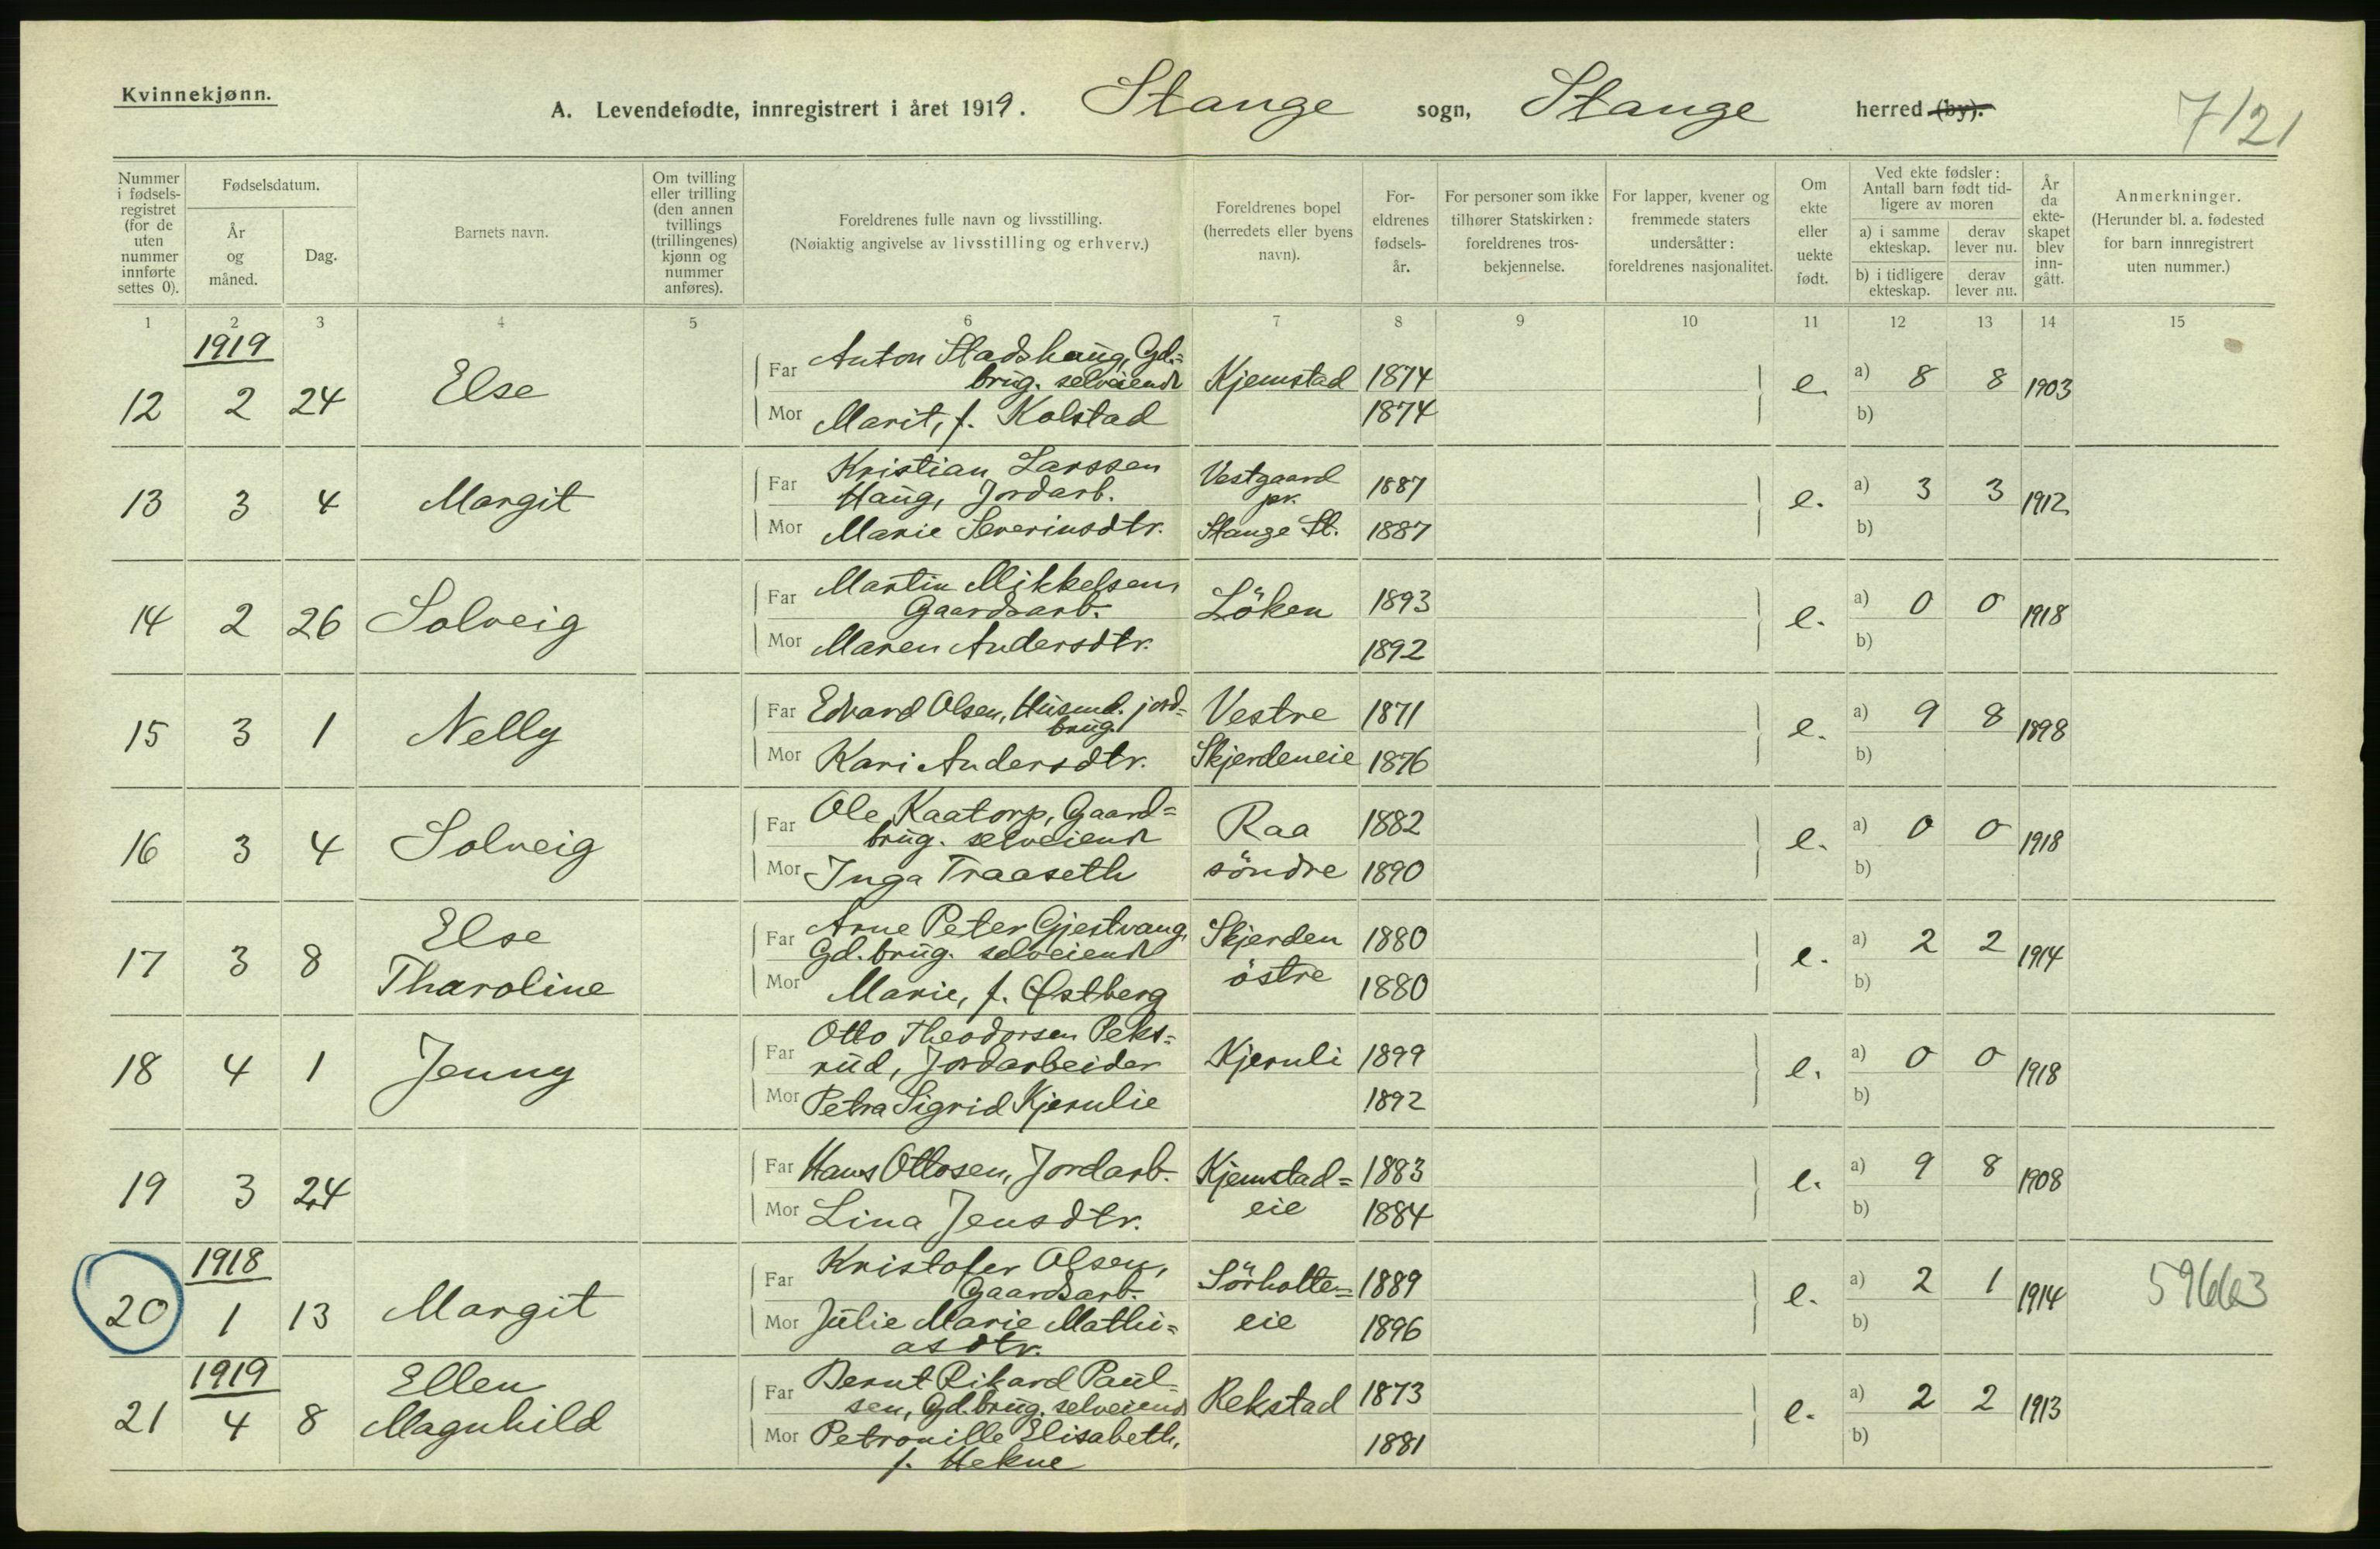 Kvinnekjønn.
A. Levendefødte, innregistrert i året 1919. Stange sogn, Stange herred (by).
7/21
Nummer i fødsels-registret (for de uten nummer innførte settes 0).
Fødselsdatum.
År og måned.
Dag.
Barnets navn.
Om tvilling eller trilling (den annen tvillings (trillingenes) kjønn og nummer anføres).
Foreldrenes fulle navn og livsstilling.
(Nøiaktig angivelse av livsstilling og erhverv.)
Foreldrenes bopel (herredets eller byens navn).
For-eldrenes fødsels-år.
For personer som ikke tilhører Statskirken: foreldrenes tros-bekjennelse.
For lapper, kvener og fremmede staters undersåtter: foreldrenes nasjonalitet.
Om ekte eller uekte født.
Ved ekte fødsler: Antall barn født tid-ligere av moren
a) i samme ekteskap.
derav lever nu.
b) i tidligere ekteskap.
derav lever nu.
År da ekte-skapet blev inn-gått.
Anmerkninger.
(Herunder bl. a. fødested for barn innregistrert uten nummer.)
1 2 3 4 5 6 7 8 9 10 11 12 13 14 15
1919
12 2 24 Else
Far Anton Stadshaug, Gd.=
brug. selveiend Kjemstad 1874 e. a) 8 8 1903
Mor Marit, f. Kolstad 1874 b)
13 3 4 Margit
Far Kristian Larssen
Haug, Jordarb. Vestgaard pr. 1887 e. a) 3 3 1912
Mor Marie Severinsdtr. Stange St. 1887 b)
14 2 26 Solveig
Far Martin Mikkelsen,
Gaardsarb. Löken 1893 e. a) 0 0 1918
Mor Maren Andersdtr. 1892 b)
15 3 1 Nelly
Far Edvard Olsen, Husmd. jord=
brug. Vestre 1871 e. a) 9 8 1898
Mor Kari Andersdtr. Skjerdeneie 1876 b)
16 3 4 Solveig
Far Ole Kaatorp, Gaard=
brug. selveiend Raa 1882 e. a) 0 0 1918
Mor Inga Traaseth söndre 1890 b)
17 3 8 Else
Tharoline
Far Arne Peter Gjestvang,
Gd.brug. selveiend Skjerden 1880 e. a) 2 2 1914
Mor Marie, f. Østberg östre 1880 b)
18 4 1 Jenny
Far Otto Theodorsen Peks=
rud, Jordarbeider Kjeruli 1899 e. a) 0 0 1918
Mor Petra Sigrid Kjerulie 1892 b)
19 3 24
Far Hans Ottosen, Jordarb. Kjemstad= 1883 e. a) 9 8 1908
Mor Lina Jensdtr. eie 1884 b)
1918
20 1 13 Margit
Far Kristofer Olsen,
Gaardsarb. Sörholte= 1889 e. a) 2 1 1914 59663
Mor Julie Marie Mathi=
asdtr. eie 1896 b)
1919
21 4 8 Ellen
Magnhild
Far Bernt Rikard Paul=
sen, Gd.brug. selveiend Rekstad 1873 e. a) 2 2 1913
Mor Petronille Elisabeth,
f. Hekne 1881 b)